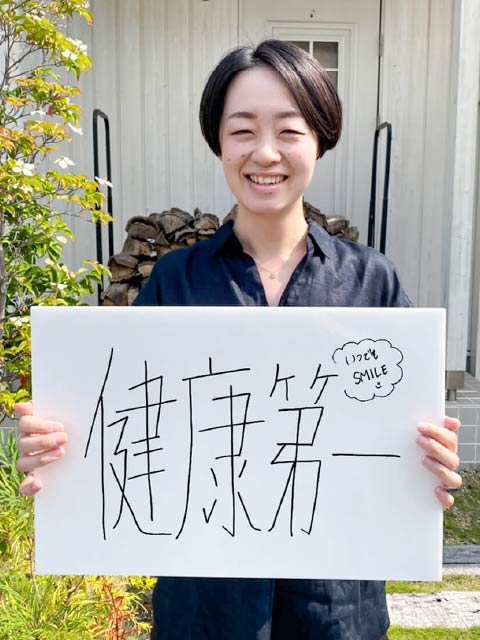 健康第一
いつでも
SMILE